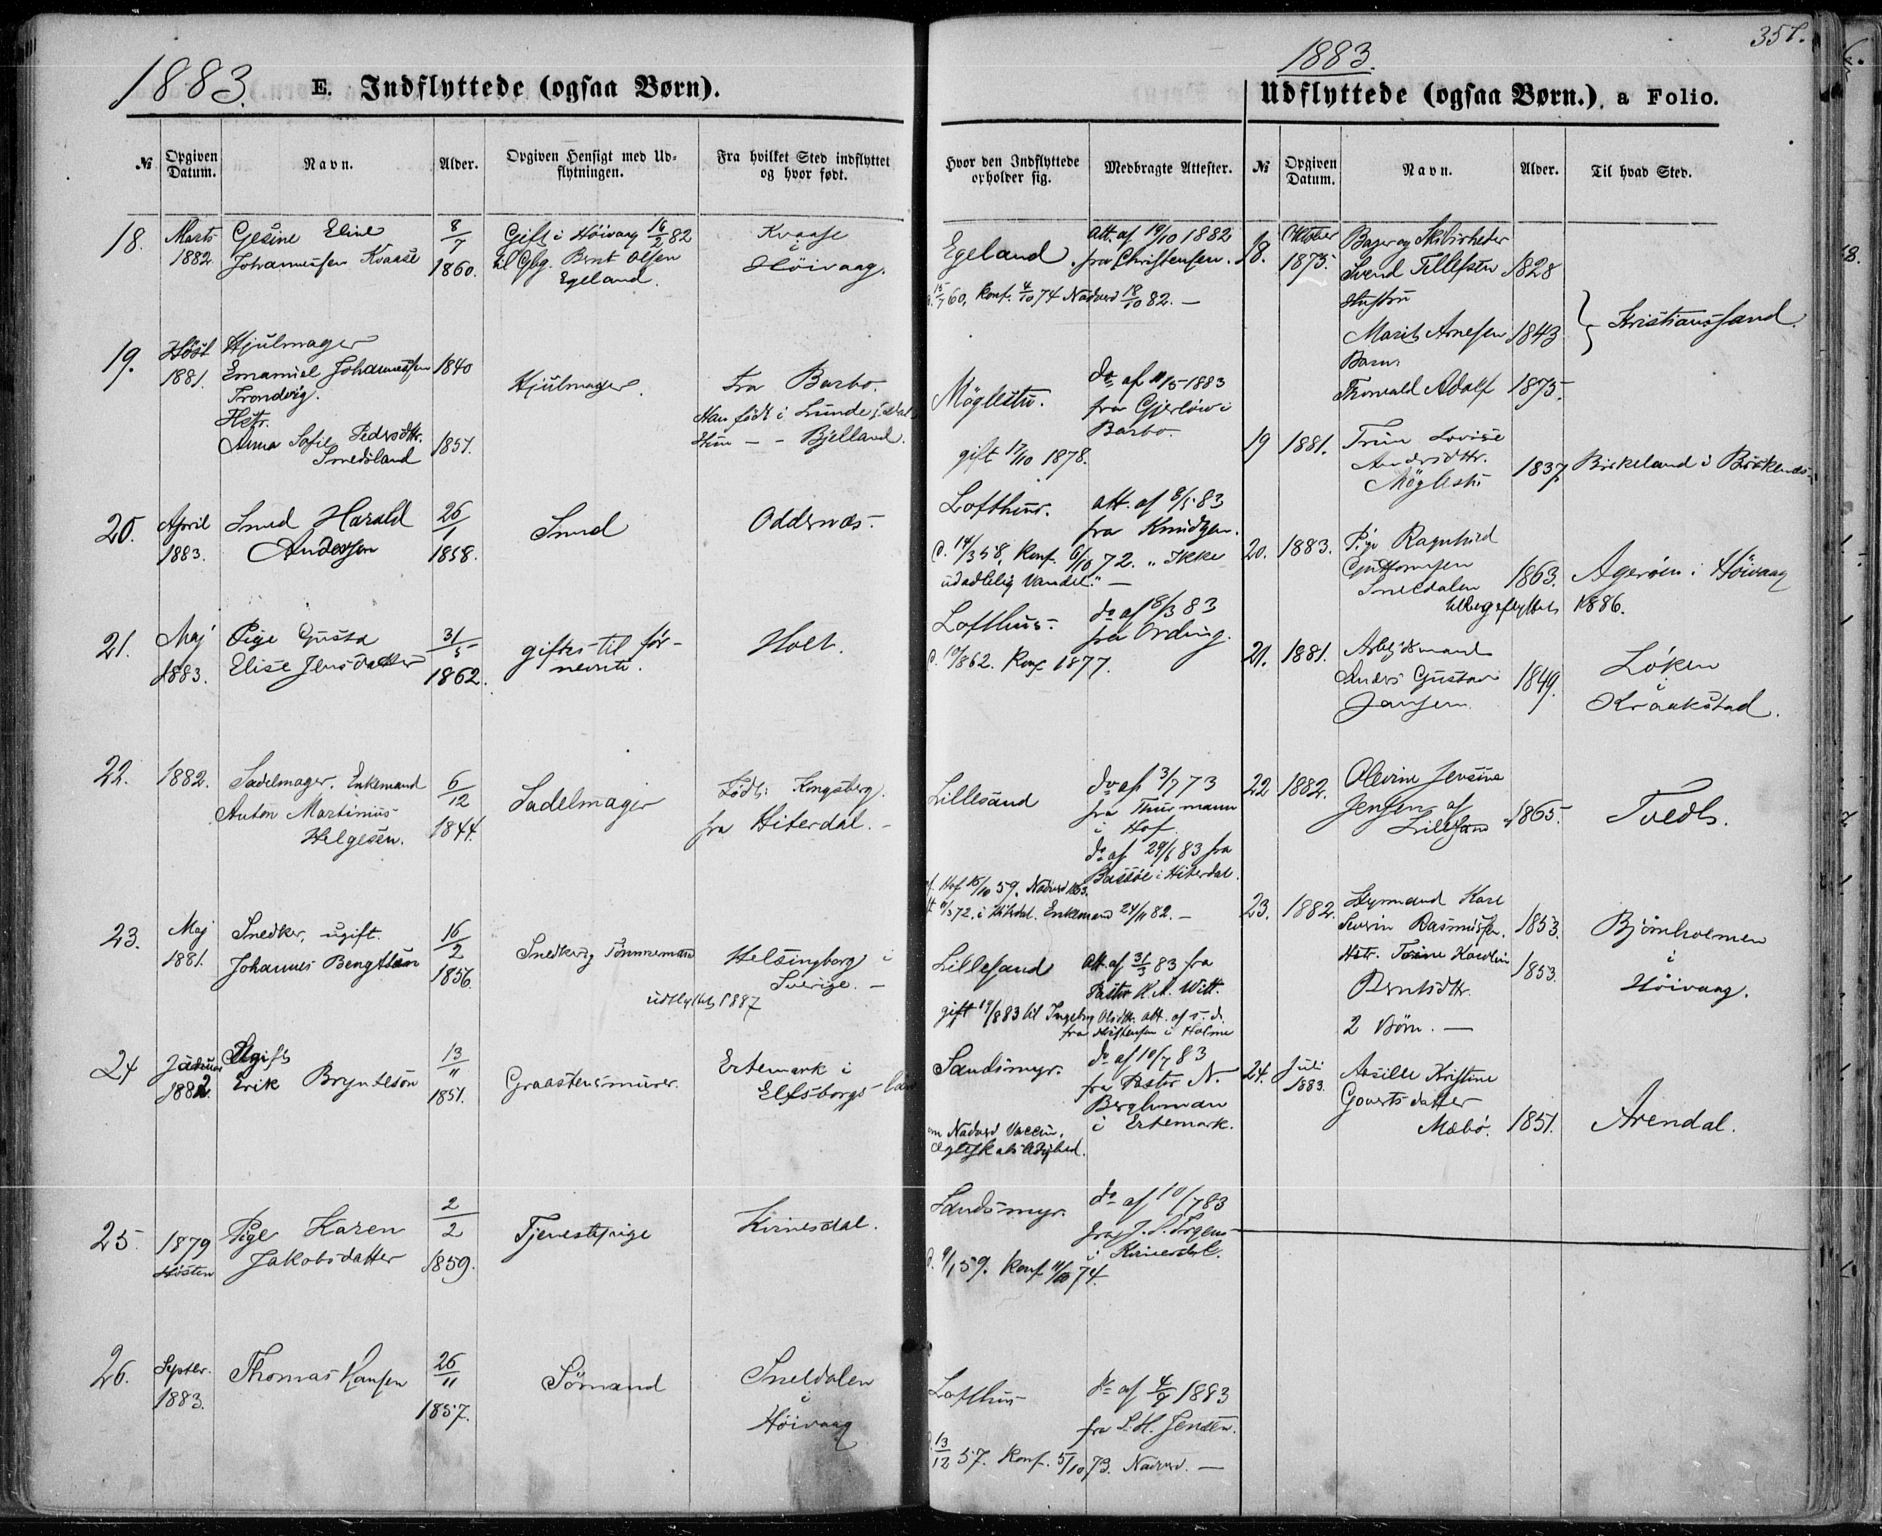 1883. E. Indflyttede (ogsaa Børn).
№ Opgiven Datum. Navn. Alder. Opgiven Hensigt med Udflytningen. Fra hvilket Sted indflyttet og hvor født.
18. Marts 1882. Gesine Eline Johannessen Kvaase 8/7 1860. Gift i Höivaag 16/2 82 til Gbg. Bernt Olsen Egeland. Kvaase i Höivaag.
19. Höst 1881. Hjulmager Emanuel Johannessen Trondvig. 1840 Hjulmager. Fra Barbo. Han født i Lunde
Hstr. Anna Sofie Pedersdttr. Smedsland 1851. Hun - - Bjelland.
20. April 1883. Smed Harald Andersen 26/1 1858. Smed Oddernæs.
21. Maj 1883. Pige Gusta Elise Jensdatter 31/5 1862. giftes til førnevnte. Holt.
22. 1882. Sadelmager, Enkemand Anton Martinius Helgesen. 6/12 1844. Sadelmager Født: Kongsberg. fra Hiterdal. -
23. Maj 1881. Snedker, ugift. Johannes Bengtsson 16/2 1856. Snedker og Tømmermand Helsingborg i Sverige. -
udflyttet 1887
24 Januar 1882. Ugift Erik Bryntesön 13/11 1851. Graastensmurer. Ertemark i Elfsborgs Län
25 1879 Høsten Pige Karen Jakobsdatter 2/2 1859. Tjenestepige Kvinesdal.
26. Septbr. 1883. Thomas Hansen 26/11 1857. Sömand Sneldalen i Höivaag
357.
1883.
Udflyttede (ogsaa Børn.), a Folio.
Hvor den Indflyttede opholder sig. Medbragte Attester. № Opgiven Datum. Navn. Alder. Til hvad Sted.
Egeland. Att. af 19/10 1882 fra Christensen.
15/7 60. Konf. 4/10 74 Nadverd 18/10 82. -
Møglestu. do af 11/5 1883 fra Gjerløw i Barbo.
gift 17/10 1878.
Lofthus. att. af 8/5 83 fra Knudtzen.
d. 14/3 58, Konf. 6/10 72. "Ikke udadlelig Vandel." -
Lofthus. do af 8/3 83 fra Ording.
d. 10/8 62. Konf. 1877.
Lillesand do af 3/7 73 fra Thurmann i Hof.
do af 29/6 83 fra Bassöe i Hiterdal.
Hof 16/10 59. Nadverd 1863.
72. i Hiterdal. Enkemand 24/11 82. -
Lillesand Att. af 31/3 83 fra Pastor K. A. Witt.
gift 19/8 83 til Ingeborg Olsdtr. att. af s. d. fra Christensen i Holme
Sandsmyr. do af 10/7 83 fra Pastor N. Berghman i Ertemark.
om Nadverd Vaccin. Ægteskabsledighed.
Sandsmyr. do af 10/7 83 fra J. S. Jrgens i Kvinesdal.
9/1 59. Konf. 11/10 74.
Lofthus do af 4/9 1883 fra S. H. Jensen.
13/12 57. Konf. 5/10 73. Nadverd. -
18. Oktober 1875. Bager og Skibsreder Svend Tellefsen 1828
Hustru Marit Arnesen 1843 Kristianssand.
Barn Thorvald Adolf 1875.
19 1881. Trine Lovise Andersdttr. Møglestu 1837 Birkeland i Birkenes
20. 1883. Pige Ragnhild Guttormsen Sneldalen 1863. Ageröen i Höivaag
tilbageflyttet 1886.
21. 1881. Arbejdsmand Anders Gustav Jansen 1849. Löken i Kraakstad.
22 1882. Olevine Jensine Jensen af Lillesand 1865. Tvedt.
23. 1882. Styrmand Karl Severin Rasmussen 1853. Bjørnholmen i Höivaag.
Hstr. Tomine Karoline Berntsdtr. 1853.
2 Børn. -
24. Juli 1883. Assille Kristine Govertsdatter Mæbø. 1851. Arendal.